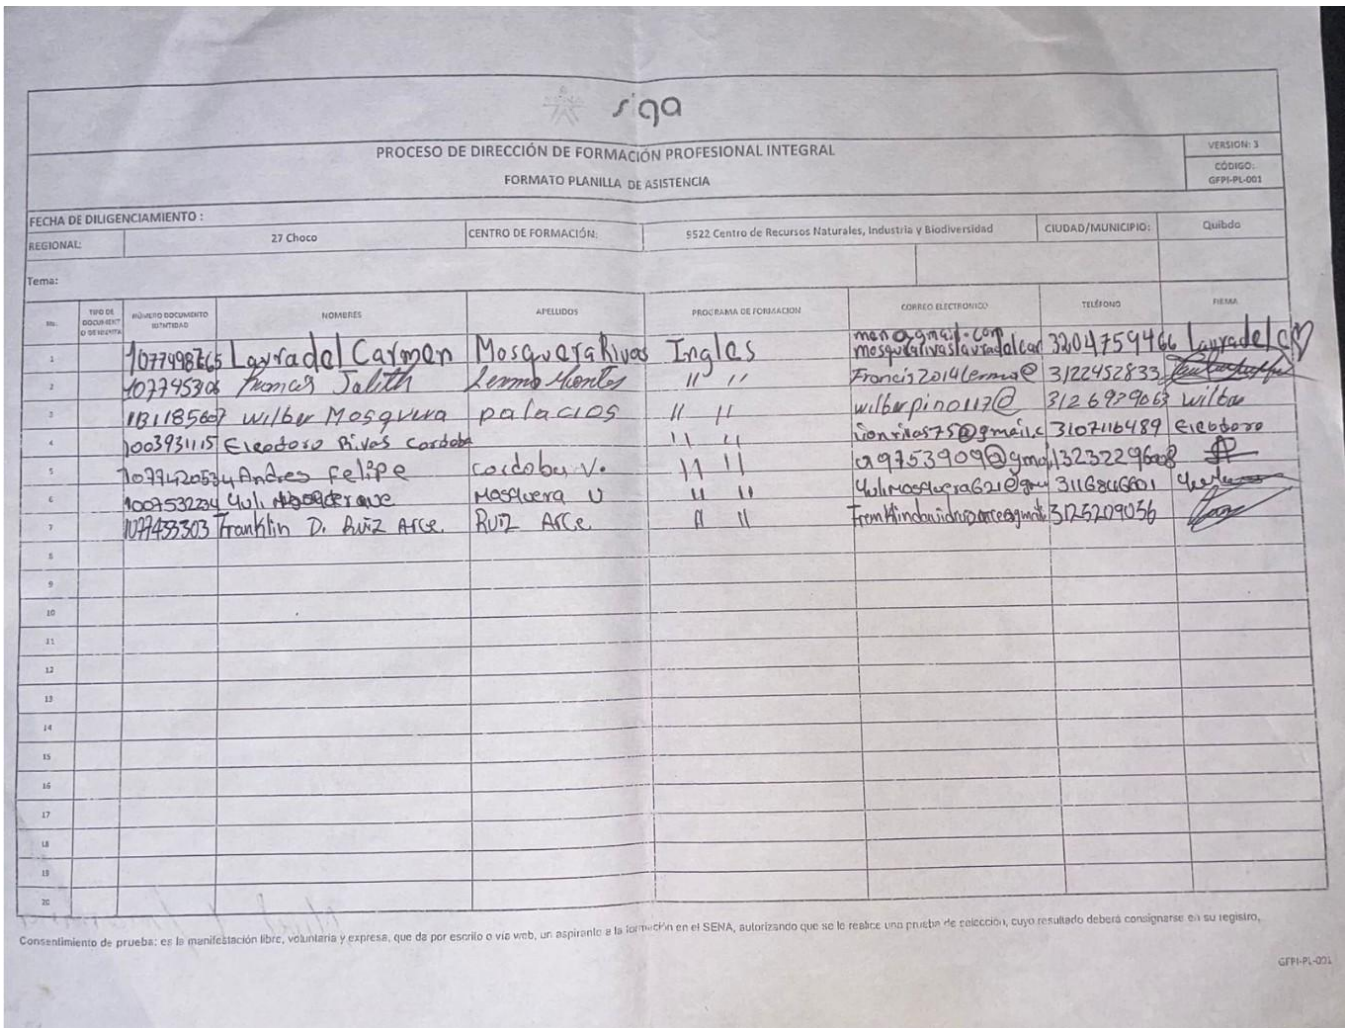 siga
PROCESO DE DIRECCIÓN DE FORMACIÓN PROFESIONAL INTEGRAL
FORMATO PLANILLA DE ASISTENCIA
VERSION: 3
CÓDIGO:
GFPI-PL-001
FECHA DE DILIGENCIAMIENTO :
REGIONAL: 27 Choco CENTRO DE FORMACIÓN: 9522 Centro de Recursos Naturales, Industria y Biodiversidad CIUDAD/MUNICIPIO: Quibdo
Tema:
No. TIPO DE DOCUMENT O DE IDENTIDA NÚMERO DOCUMENTO IDENTIDAD NOMBRES APELLIDOS PROGRAMA DE FORMACION CORREO ELECTRONICO TELÉFONO FIRMA
men@gmail.com
1 1077498765 Laura del Carmen Mosquera Rivas Ingles mosquerarivaslauradelcar 3204759466 Laura del C
2 Jalith Lermo " " Francis2014lermo@ 3122452833
3 Wilber Mosquera palacios " " wilberpino117@ Wilber
4 1003931115 Eleodoro Rivas Cordoba " " 3107116489 Eleodoro
5 Andres Felipe Cordoba V. " "
6 1007532234 Yuli Mosquera U " " yulimosquera621@gm
7 1077433303 Franklin D. Ruiz Arce. Ruiz Arce. " " 3125209056
8
9
10
11
12
13
14
15
16
17
18
19
20
Consentimiento de prueba: es la manifestación libre, voluntaria y expresa, que da por escrito o vía web, un aspirante a la formación en el SENA, autorizando que se le realice una prueba de selección, cuyo resultado deberá consignarse en su registro,
GFPI-PL-001